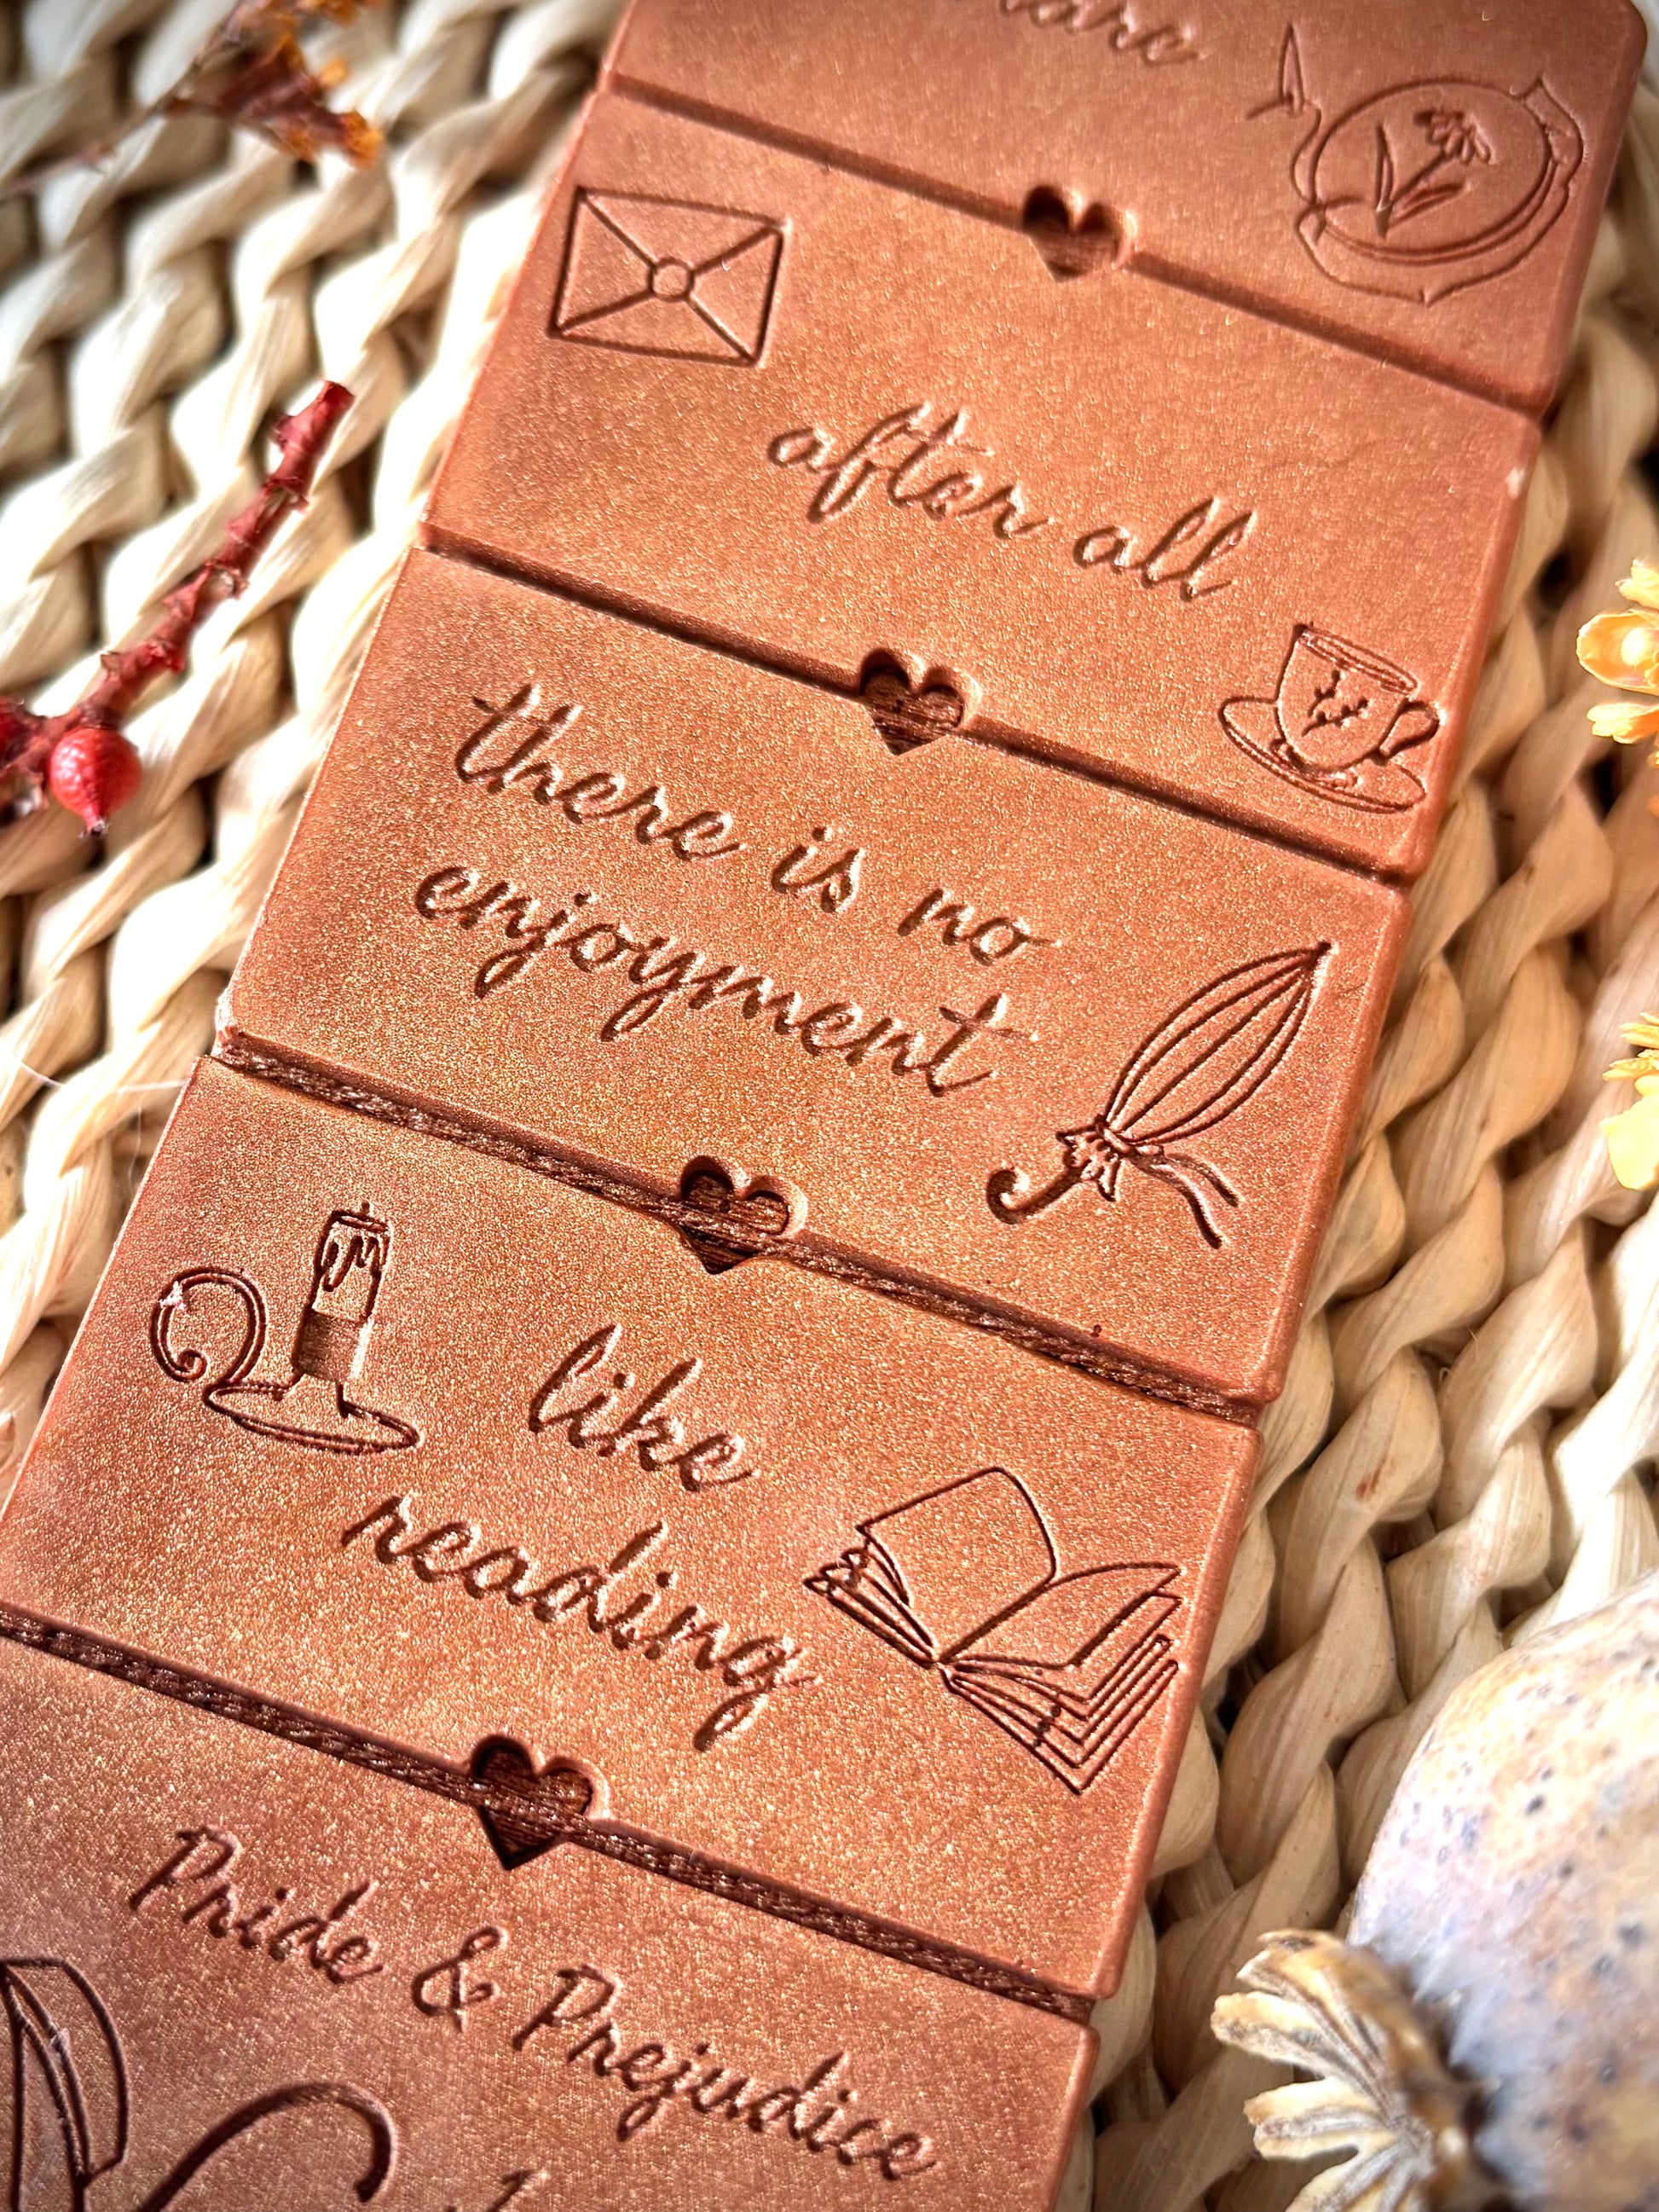 after all
there is no
enjoyment
like
reading
Pride & Prejudice